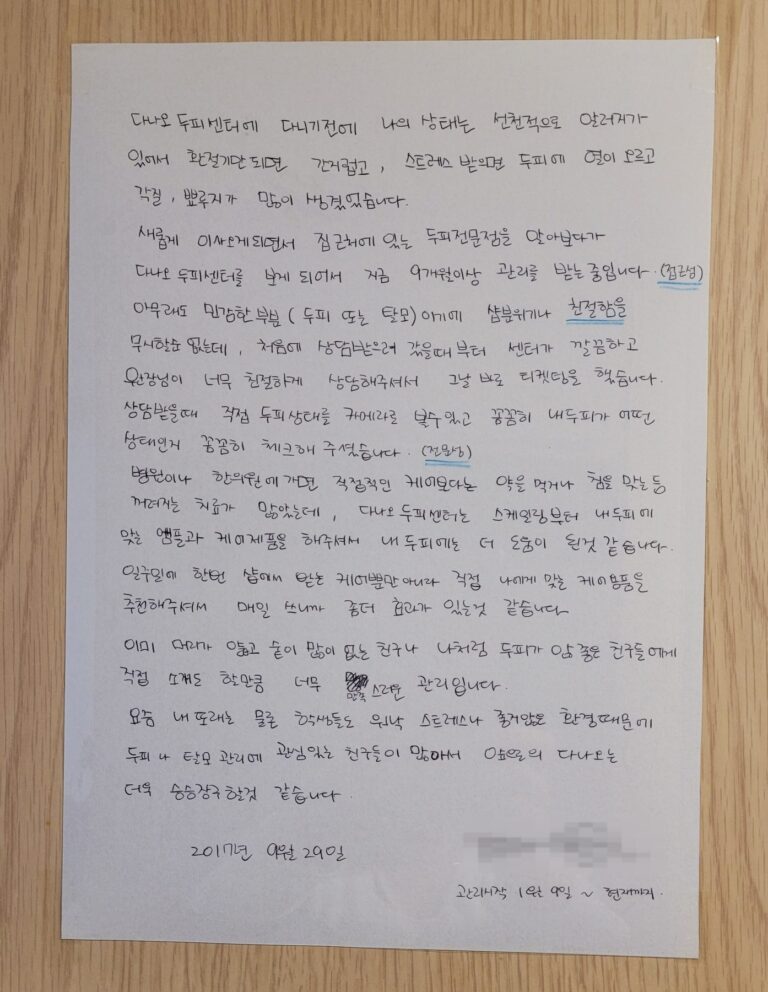 다나오 두피센터에 다니기전에 나의 상태는 선천적으로 알러지가
있어서 환절기만되면 간지럽고, 스트레스 받으면 두피에 열이 오르고
각질, 뾰루지가 많이 생겼었습니다.
새롭게 이사오게되면서 집근처에 있는 두피전문점을 알아보다가
다나오 두피센터를 보게 되어서 지금 9개월이상 관리를 받는중입니다. (접근성)
아무래도 민감한부분 (두피 또는 탈모)이기에 샵분위기나 친절함을
무시할순 없는데, 처음에 상담받으러 갔을때부터 센터가 깔끔하고
원장님이 너무 친절하게 상담해주셔서 그날 바로 티켓팅을 했습니다.
상담받을때 직접 두피상태를 카메라로 볼수있고 꼼꼼히 내두피가 어떤
상태인지 꼼꼼히 체크해 주셨습니다. (전문성)
병원이나 한의원에가면 직접적인 케어보다는 약을 먹거나 침을 맞는등
꺼려지는 치료가 많았는데, 다나오두피센터는 스케일링부터 내두피에
맞는 앰플과 케어제품을 해주셔서 내두피에는 더 도움이 된것 같습니다.
일주일에 한번 샵에서 받는 케어뿐만아니라 직접 나에게 맞는 케어용품을
추천해주셔서 매일 쓰니까 좀더 효과가 있는것 같습니다
이미 머리가 얇고 숱이 많이 없는 친구나 나처럼 두피가 안좋은 친구들에게
직접 소개도 할만큼 너무 만족스러운 관리입니다.
요즘 내또래는 물론 학생들도 워낙 스트레스나 좋지않은 환경때문에
두피나 탈모관리에 관심있는 친구들이 많아서 의 다나오는
더욱 승승장구할것 같습니다.
2017년 9월 29일
관리시작 1월 9일 ~ 현재까지.